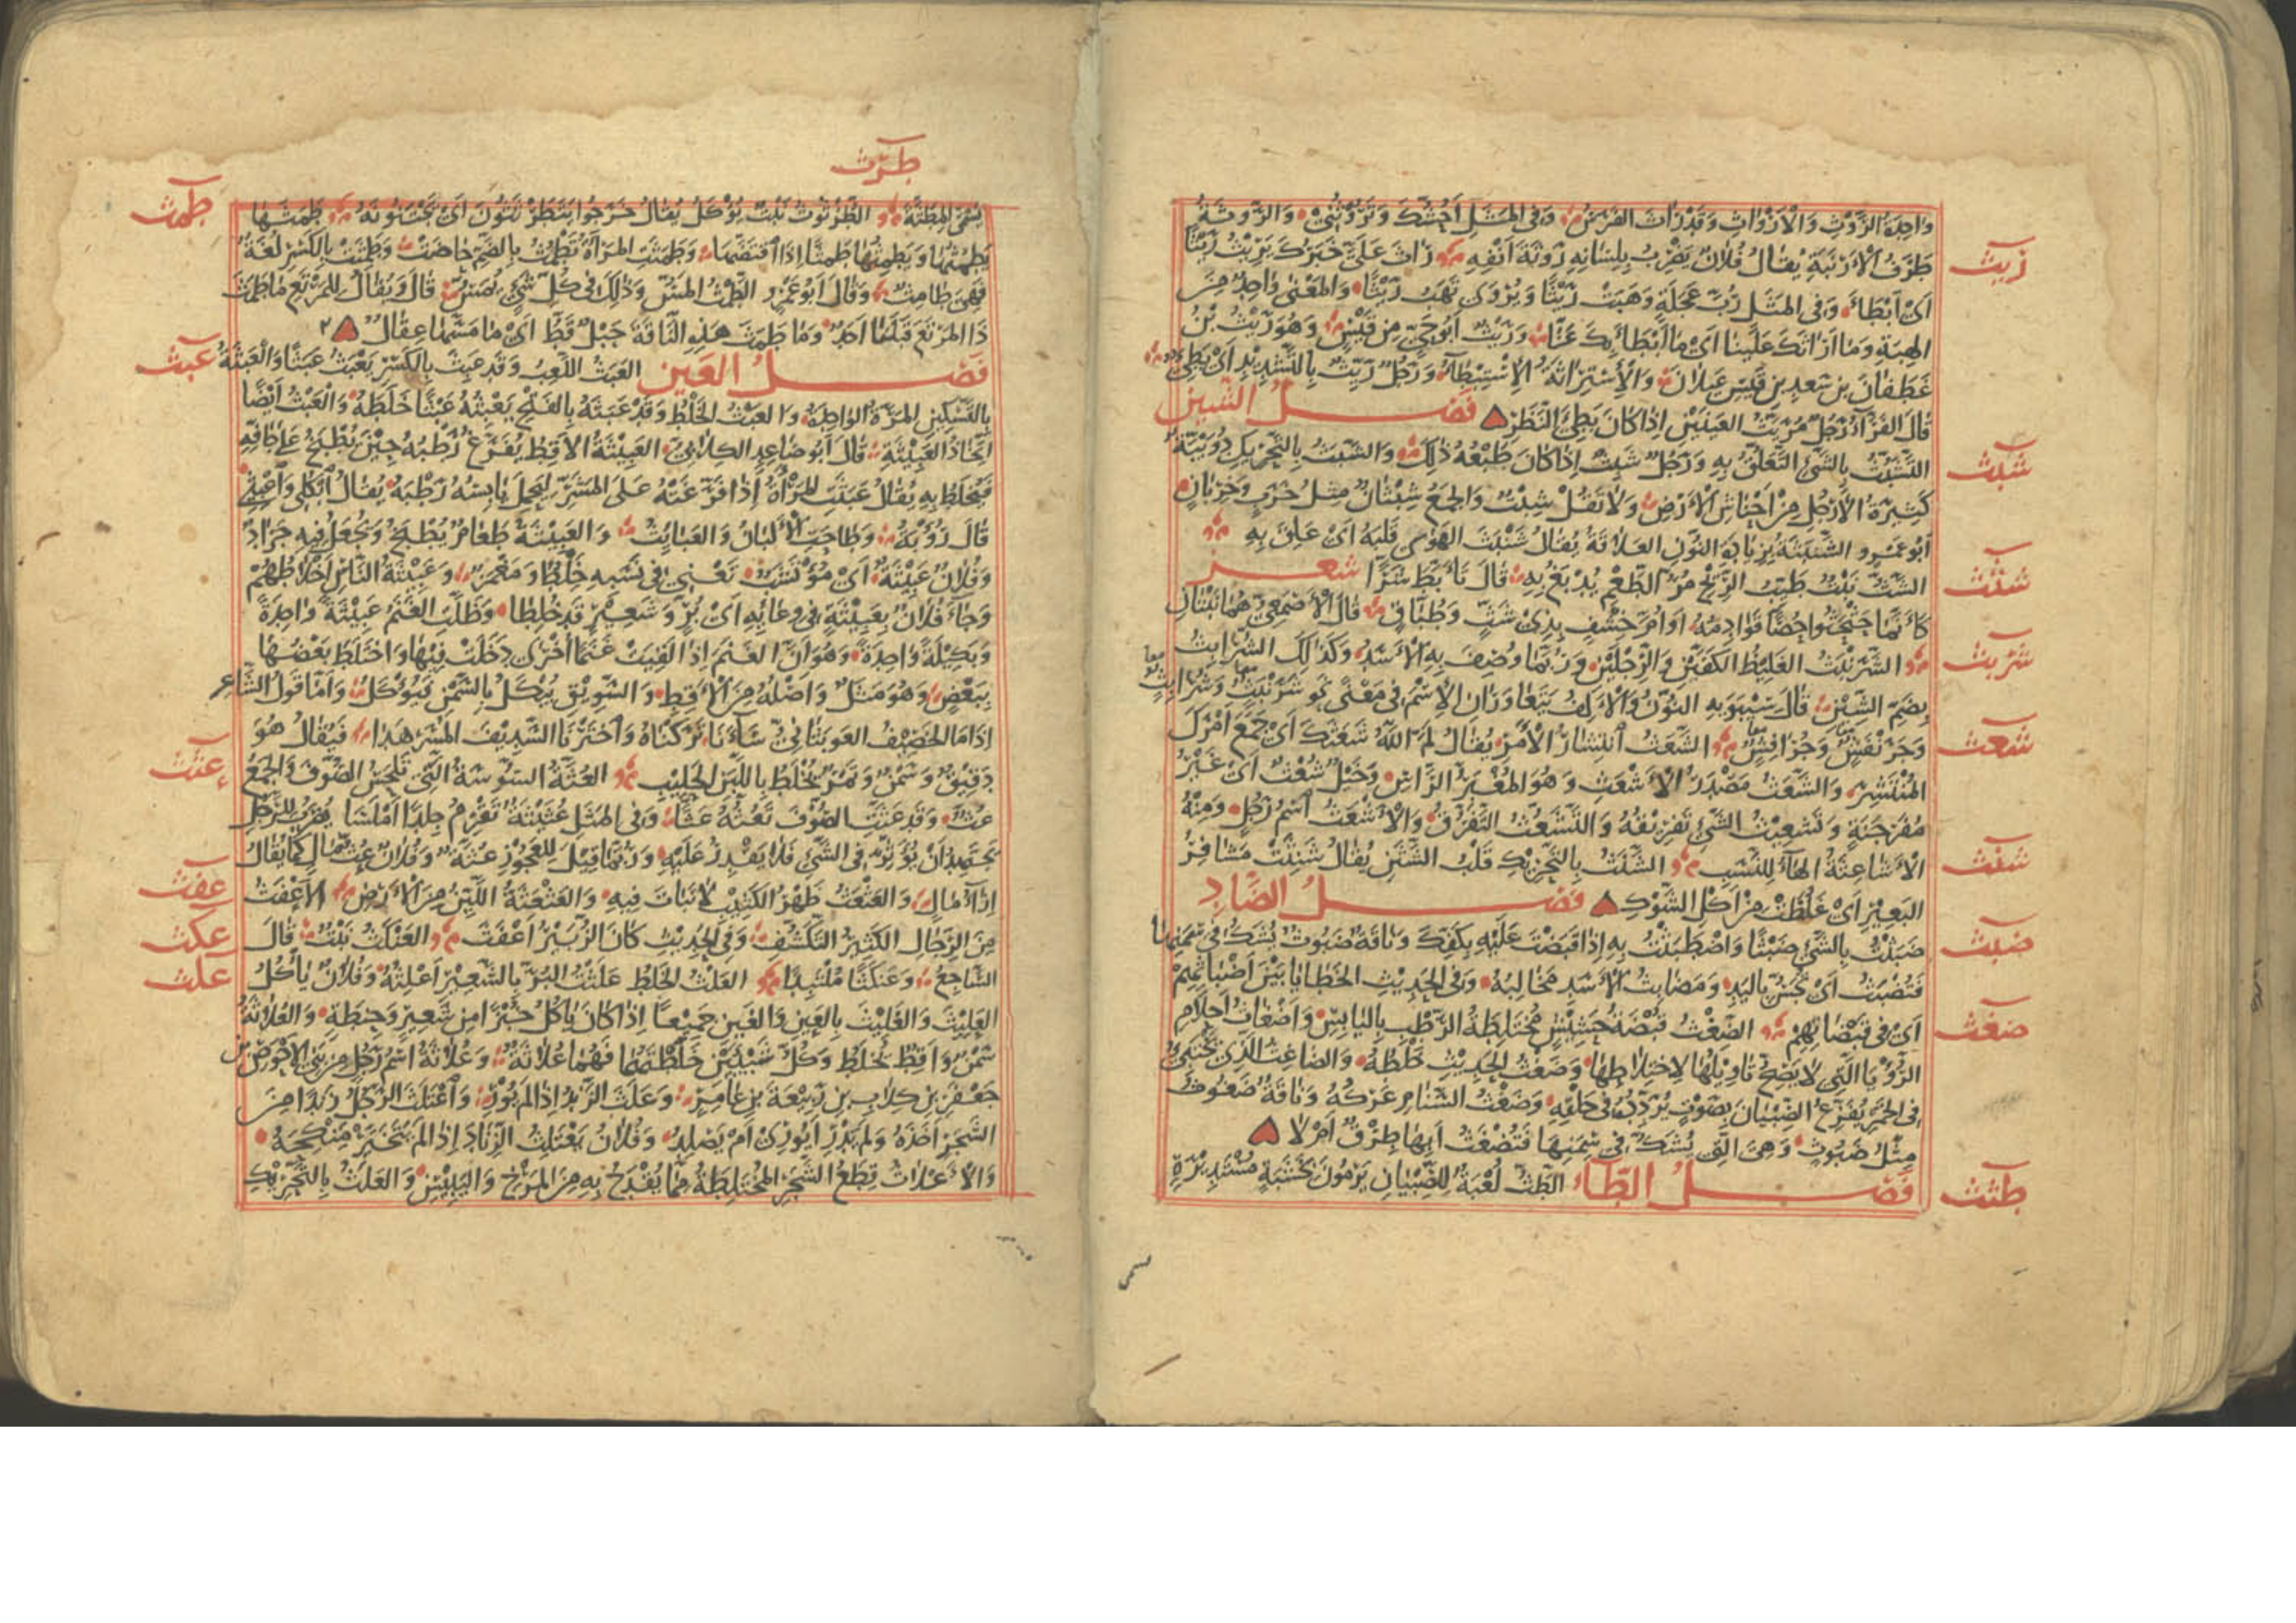 واحدة الروث والأرواث وقد راث الفرس وفي المثل أحشك وتروثني والروثة
ريث
طرف الأرنبة يقال فلان يضرب بلسانه روثة أنفه راث علي خبرك يريث ريثا
أي أبطأ وفي المثل رب عجلة وهبت ريثا ويروى تهب ريثا والمعنى واحد من
الهبة وما أراثك علينا أي ما أبطأ بك عنا وريث أبو حي من قيس وهو ريث بن
غطفان بن سعد بن قيس عيلان والاستراثة الاستبطاء ورجل ريث بالتشديد أي بطيء
قال الفراء رجل مريث العينين إذا كان بطيء النظر فصل الشين
شبث
التشبث بالشيء التعلق به ورجل شبث إذا كان طبعه ذلك والشبث بالتحريك دويبة
كثيرة الأرجل من أحناش الأرض ولا تقل شبث والجمع شبثان مثل خرب وخربان
أبو عمرو الشنبثة بزيادة النون العلاقة يقال شنبث الهوى قلبه أي علق به
شثث
الشث نبت طيب الريح مر الطعم يدبغ به قال تأبط شرا شعر
كأنما حثحثوا حصا قوادمه أو أم خشف بذي شث وطباق قال الأصمعي هما نبتان
شربث
الشرنبث الغليظ الكفين والرجلين وربما وصف به الأسد وكذلك الشرابث
بضم الشين قال سيبويه النون والألف يتعاوران الاسم في معنى نحو شرنبث وشرابث
شعث
وجرنفش وجرافش الشعث انتشار الأمر يقال لم الله شعثك أي جمع أمرك
المنتشر والشعث مصدر الأشعث وهو المغبر الرأس وخيل شعث أي غير
مفرجنة وتشعيث الشيء تفريقه والتشعث التفرق والأشعث اسم رجل ومنه
شنث
الأشاعثة الهاء للنسب الشنث بالتحريك قلب الشثن يقال شنثت مشافر
البعير أي غلظت من أكل الشوك فصل الضاد
ضبث
ضبثت بالشيء ضبثا واضطبثت به إذا قبضت عليه بكفك وناقة ضبوث يشك في سمنها
فتضبث أي تجس باليد ومضابث الأسد مخالبه وفي الحديث الخطايا بين أضباثهم
ضغث
أي في قبضاتهم الضغث قبضة حشيش مختلطة الرطب باليابس وأضغاث أحلام
الرؤيا التي لا يصح تأويلها لاختلاطها وضغث الحديث خلطه والضاغث الذي يختبئ
في الخمر يفزع الصبيان بصوت يردده في حلقه وضغث السنام عركه وناقة ضغوث
مثل ضبوث وهي التي يشك في سمنها فتضغث أبها طرق أم لا
طثث
فصل الطاء الطث لعبة للصبيان يرمون بخشبة مستديرة
طرث
طمث
يسمى المطثة الطرثوث نبت يؤكل يقال خرجوا يتطرثثون أي يجتنونه طمثها
يطمثها ويطمثها طمثا إذا افتضها وطمثت المرأة تطمث بالضم حاضت وطمثت بالكسر لغة
فهي طامث وقال أبو عمرو الطمث المس وذلك في كل شيء يمس قال ويقال للمرتع ما طمث
ذا المرتع قبلنا أحد وما طمث هذه الناقة حبل قط أي ما مسها عقال
عبث
فصل العين العبث اللعب وقد عبث بالكسر يعبث عبثا والعبثة
بالتسكين المرة الواحدة والعبث الخلط وقد عبثه بالفتح يعبثه عبثا خلطه والعبث أيضا
اتخاذ العبيثة قال أبو صاعد الكلابي العبيثة الأقط يفرغ رطبه حين يطبخ على جافه
فيخلط به يقال عبثت المرأة إذا فرغته على المشر ليحمل يابسه رطبه يقال ابكلي واعبثي
قال رؤبة وطاحت الألبان والعبايث والعبيثة طعام يطبخ ويجعل فيه جراد
وفلان عبيثة أي مؤتشب يعني في نسبه خلط ومغمز وعبيثة الناس أخلاطهم
وجاء فلان بعبيثة في وعائه أي بر وشعير قد خلطا وظلت الغنم عبيثة واحدة
وبكيلة واحدة وهو أن الغنم إذا لقيت غنما أخرى دخلت فيها واختلط بعضها
ببعض وهو مثل وأصله من الأقط والسويق يبكل بالسمن فيؤكل وأما قول الشاعر
إذا ما الخصيف العوبثاني ساءنا تركناه واخترنا السديف المسرهدا فيقال هو
عثث
دقيق وسمن وتمر يخلط باللبن الحليب العثة السوسة التي تلحس الصوف والجمع
عث وقد عثت الصوف تعثه عثا وفي المثل عثيثة تقرم جلدا أملسا يضرب للرجل
يجتهد أن يؤثر في الشيء فلا يقدر عليه وربما قيل للعجوز عثة وفلان عث مال كما يقال
عفث
إزاء مال والعثعث ظهر الكثيب لا نبات فيه والعثعثة اللين من الأرض الأعفث
عكث
من الرجال الكثير التكشف وفي الحديث كان الزبير أعفث العنكث نبت قال
علث
الساجع وعنكثا ملتبدا العلث الخلط علثت البر بالشعير أعلثه وفلان يأكل
العليث والغليث بالعين والغين جميعا إذا كان يأكل خبزا من شعير وحنطة والعلاثة
سمن وأقط يخلط وكل شيئين خلطتهما فهما علاثة وعلاثة اسم رجل من بني الأحوص بن
جعفر بن كلاب بن ربيعة بن عامر وعلث الزند إذا لم يور واعتلث الرجل زندا من
الشجر أخذه ولم يدر أيوري أم يصلد وفلان يعتلث الزناد إذا لم يتخير منكحه
والأعلاث قطع الشجر المختلطة مما يقدح به من المرخ واليبيس والعلث بالتحريك